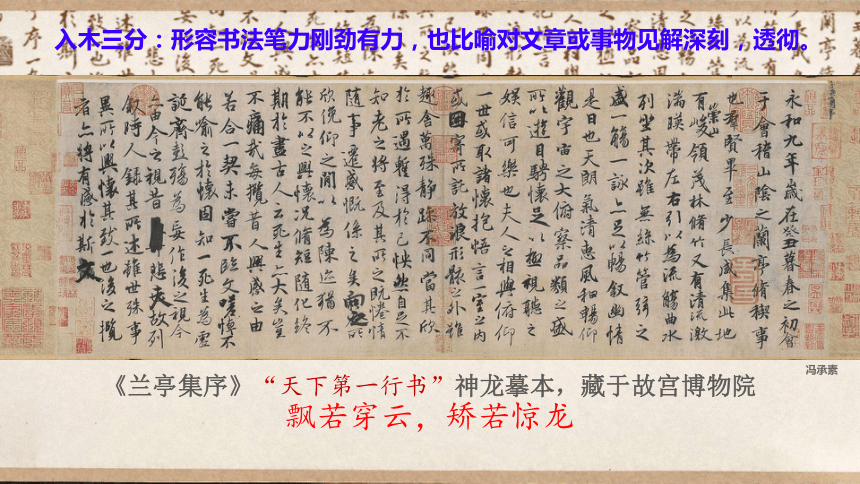 入木三分：形容书法笔力刚劲有力，也比喻对文章或事物见解深刻，透彻。
永和九年歲在癸丑暮春之初會
于會稽山陰之蘭亭脩稧事
也羣賢畢至少長咸集此地
有崇山峻領茂林脩竹又有清流激
湍暎帶左右引以為流觴曲水
列坐其次雖無絲竹管弦之
盛一觴一詠亦足以暢叙幽情
是日也天朗氣清惠風和暢仰
觀宇宙之大俯察品類之盛
所以遊目騁懷足以極視聽之
娛信可樂也夫人之相與俯仰
一世或取諸懷抱悟言一室之內
或因寄所託放浪形骸之外雖
趣舍萬殊靜躁不同當其欣
於所遇暫得於己怏然自足不
知老之將至及其所之既惓情
隨事遷感慨係之矣向之所
欣俛仰之閒以為陳迹猶不
能不以之興懷況脩短隨化終
期於盡古人云死生亦大矣豈
不痛哉每攬昔人興感之由
若合一契未嘗不臨文嗟悼不
能喻之於懷固知一死生為虛
誕齊彭殤為妄作後之視今
亦由今之視昔悲夫故列
叙時人錄其所述雖世殊事
異所以興懷其致一也後之攬
者亦將有感於斯文
冯承素
《兰亭集序》“天下第一行书”神龙摹本，藏于故宫博物院
飘若穿云，矫若惊龙